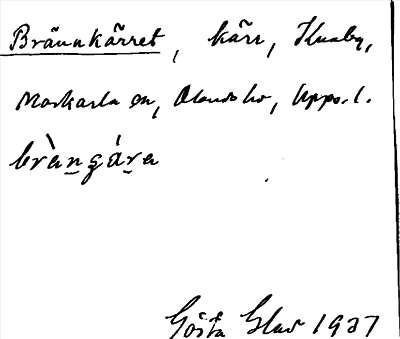 Brännkärret, kärr, Husby,
Morkarla sn, Olands hd, Upps. l.
brängára
Gösta Glad 1937